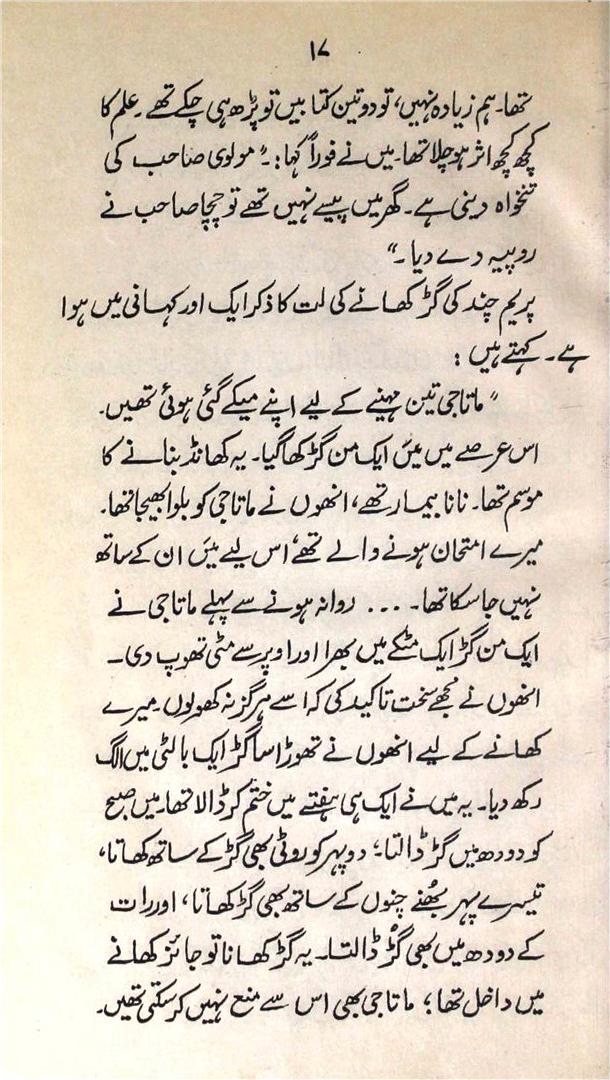 ۱۷
تھا۔ ہم زیادہ نہیں، تو دو تین کتابیں تو پڑھ ہی چکے تھے۔ علم کا
کچھ کچھ اثر ہو چلا تھا۔ میں نے فوراً کہا: ۔ "مولوی صاحب کی
تنخواہ دینی ہے۔ گھر میں پیسے نہیں تھے تو چچا صاحب نے
روپیہ دے دیا۔"
پریم چند کی گڑ کھانے کی لت کا ذکر ایک اور کہانی میں ہوا
ہے۔ کہتے ہیں:
"ماتا جی تین مہینے کے لیے اپنے میکے گئی ہوئی تھیں۔
اس عرصے میں میں ایک من گڑ کھا گیا۔ یہ کھانڈ بنانے کا
موسم تھا۔ نانا بیمار تھے، انھوں نے ماتا جی کو بلوا بھیجا تھا۔
میرے امتحان ہونے والے تھے، اس لیے میں ان کے ساتھ
نہیں جا سکا تھا۔ ... روانہ ہونے سے پہلے ماتا جی نے
ایک من گڑ ایک مٹکے میں بھرا اور اوپر سے مٹی تھوپ دی۔
انھوں نے مجھے سخت تاکید کی کہ اسے ہرگز نہ کھولوں۔ میرے
کھانے کے لیے انھوں نے تھوڑا سا گڑ ایک بالٹی میں الگ
رکھ دیا۔ یہ میں نے ایک ہی ہفتے میں ختم کر ڈالا تھا۔ میں صبح
کو دودھ میں گڑ ڈالتا؛ دوپہر کو روٹی بھی گڑ کے ساتھ کھاتا،
تیسرے پہر بھُنے چنوں کے ساتھ بھی گڑ کھاتا، اور رات
کے دودھ میں بھی گڑ ڈالتا۔ یہ گڑ کھانا تو جائز کھانے
میں داخل تھا؛ ماتا جی بھی اس سے منع نہیں کر سکتی تھیں۔